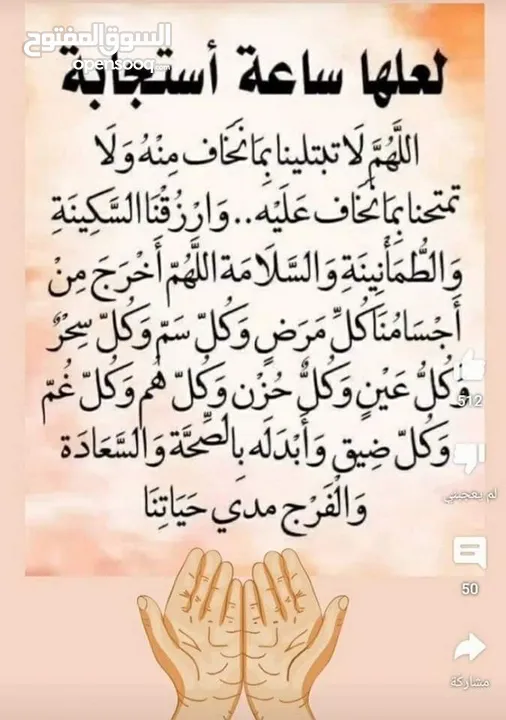 السوق المفتوح
opensooq.com
لعلها ساعة أستجابة
اللَّهُمَّ لَا تبتلينا بِمَا نَخَاف مِنْهُ وَلَا
تمتحنا بِمَا نَخَاف عَلَيْه..وَارْزُقْنَا السَّكِينَةِ
وَالطُّمَأْنِينَةِ وَالسَّلَامَة اللَّهُمّ أَخْرَجَ مِنْ
أَجْسَامُنَا كُلِّ مَرَضٍ وَكُلّ سَمّ وَكُلّ سِحْرٌ
وَكُلُّ عَيْنٍ وَكُلُّ حُزْن وَكُلّ هُم وَكُلّ غُمّ
وَكُلّ ضِيق وَأَبْدَلَه بِالصِّحَّة وَالسَّعَادَة
وَالْفَرْج مدي حَيَاتِنَا
512
لم يعجبني
50
مشاركة